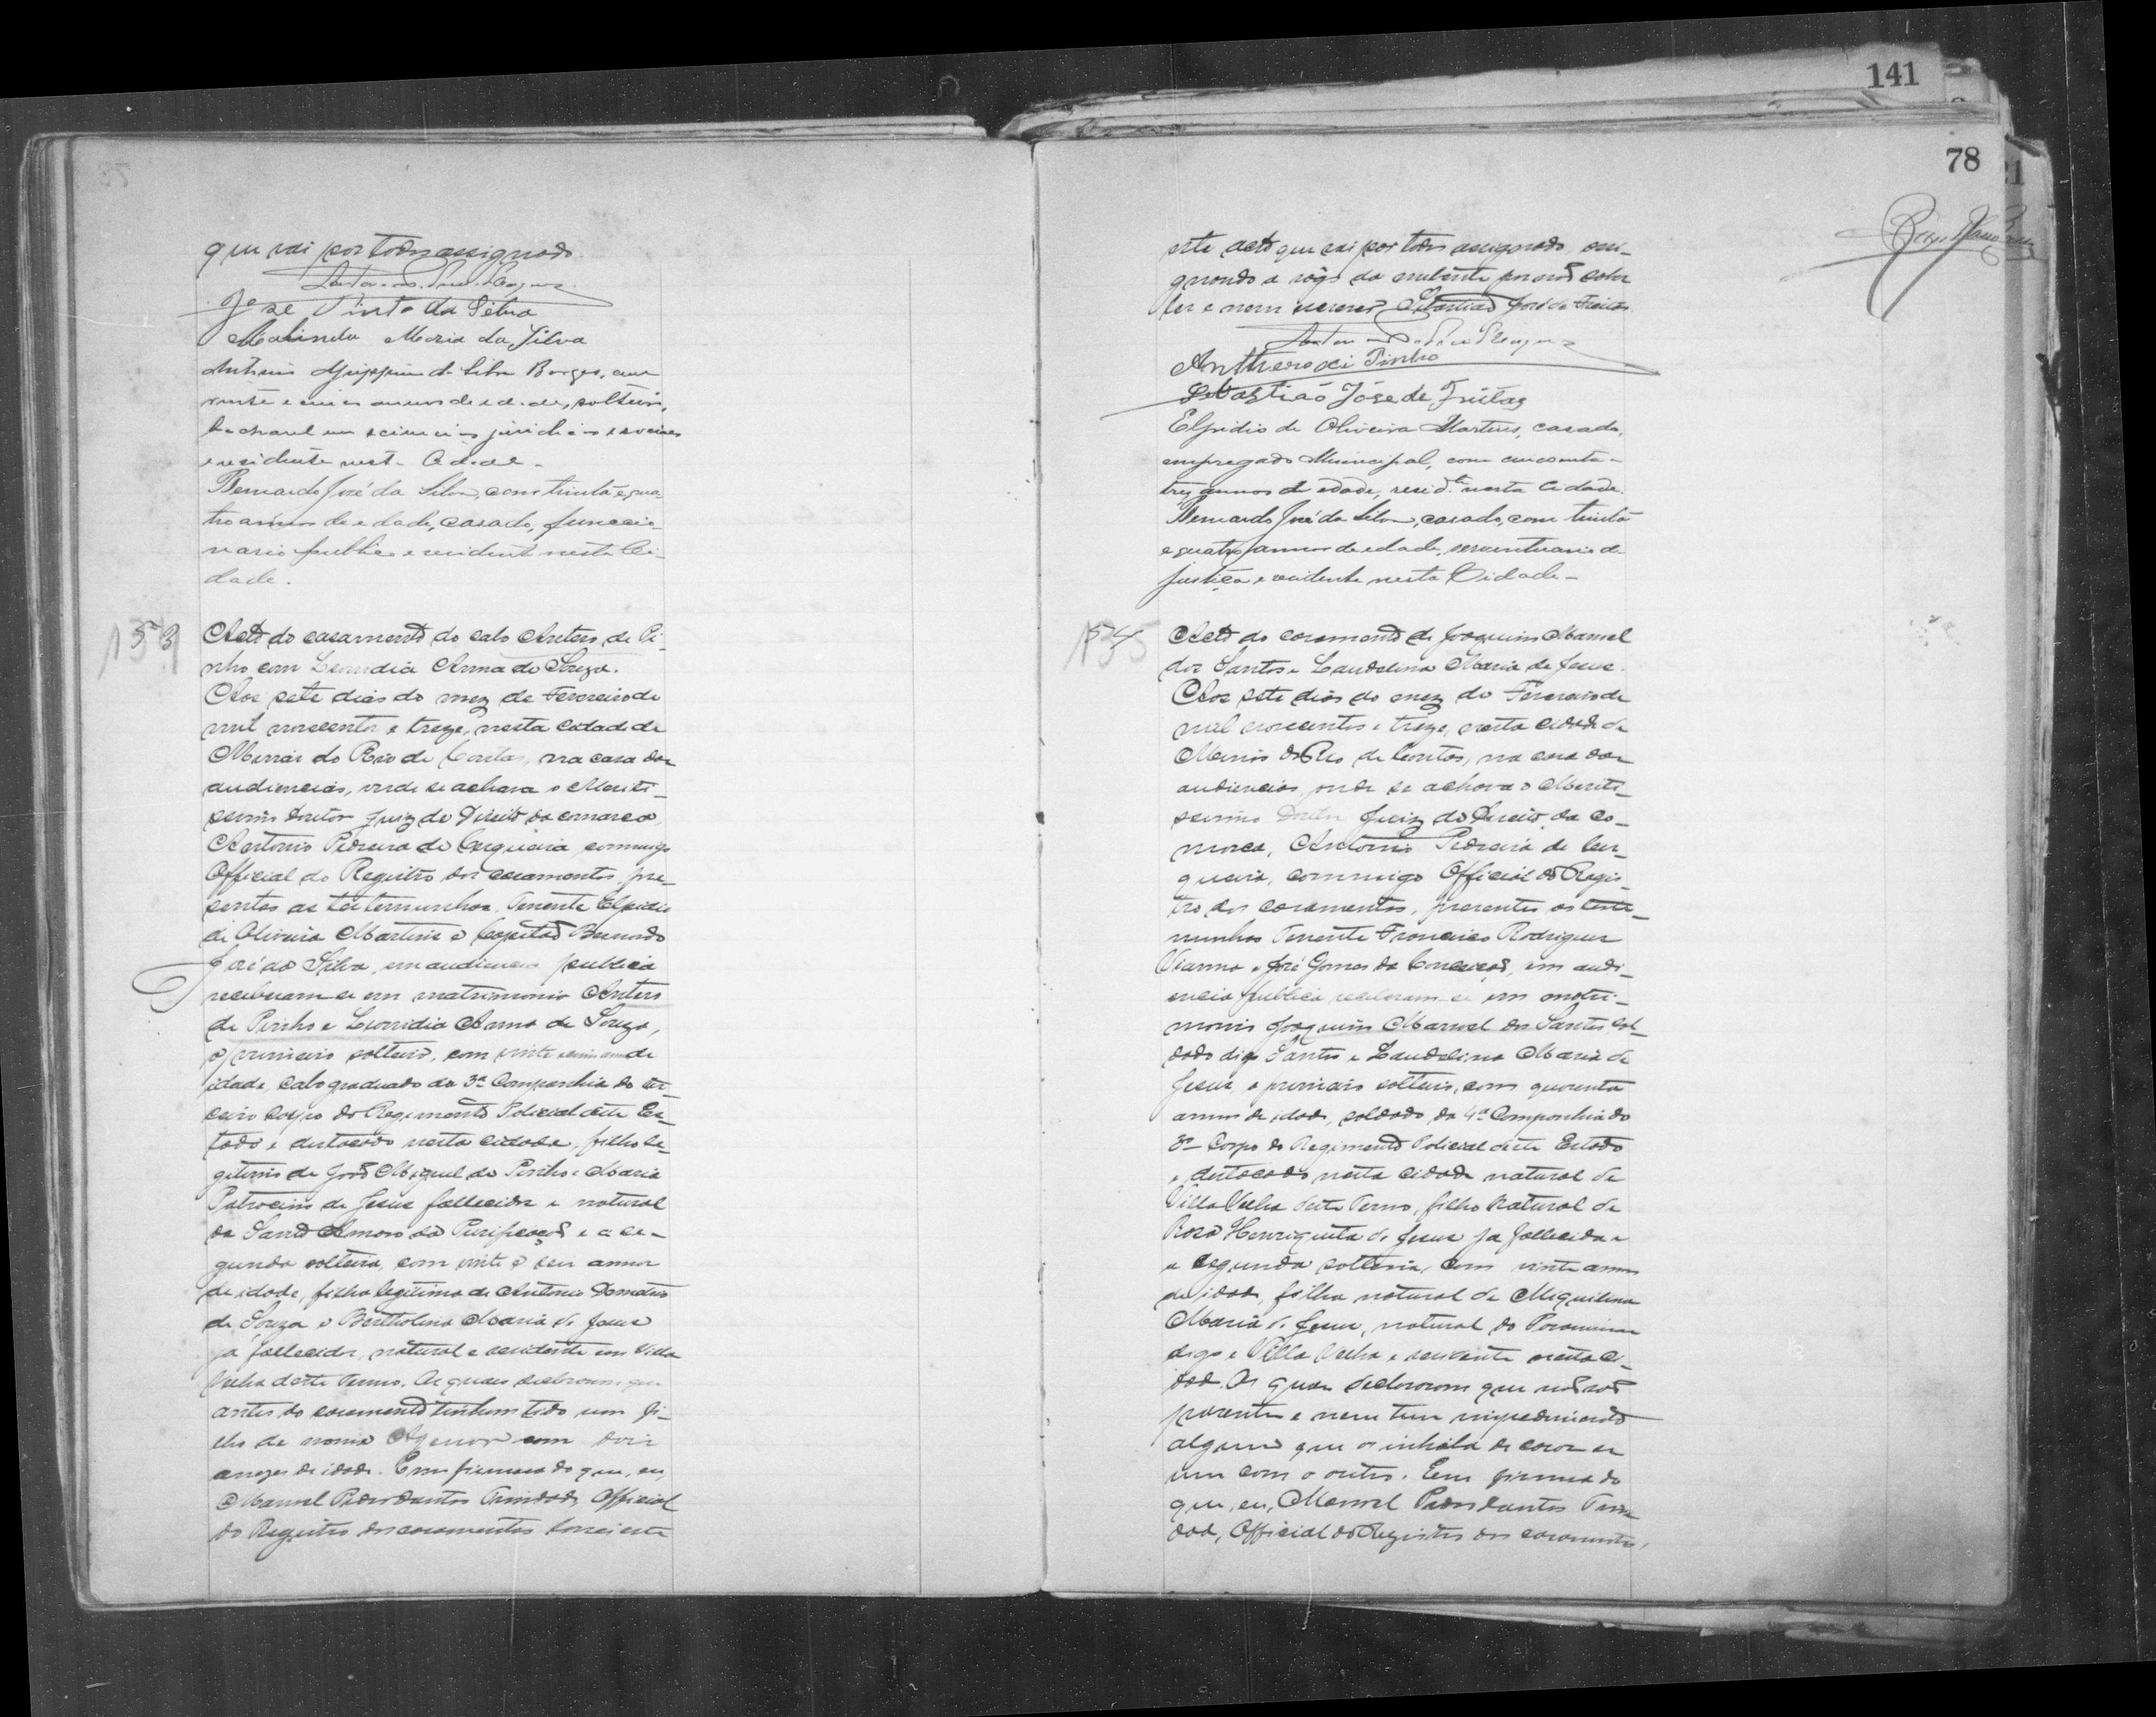 que vai por todos assignado.
José Pinto da Silva
Maria da Silva
Antonio da Silva Borges, com
vinte e cinco annos de edade, solteiro,
bacharel em sciencias juridicas e sociaes
e residente nesta Cidade.
Bernardo José da Silva, com trinta e qua-
tro annos de edade, casado, funccio-
nario publico e residente nesta Ci-
dade.
153
Acto do casamento do cabo Antero de Pi-
nho com Leonidia Anna de Souza.
Aos sete dias do mez de Fevereiro de
mil novecentos e treze, nesta Cidade de
Minas do Rio de Contas, na casa das
audiencias, onde se achava o Meriti-
ssimo Doutor Juiz de Direito da comarca,
Antonio Pedreira de Cerqueira commigo
Official do Registro dos casamentos pre-
sentes as testemunhas, Tenente Elpidio
de Oliveira Martins e Capitão Bernardo
José da Silva, em audiencia publica
receberam-se em matrimonio Antero
de Pinho e Leonidia Anna de Souza,
o primeiro solteiro, com vinte annos de
idade, cabo graduado da 3ª Companhia do ter-
ceiro corpo do Regimento Policial deste Es-
tado e destacado nesta cidade, filho le-
gitimo de João Miguel de Pinho e Maria
Patrocinio de Jesus fallecidos e natural
de Santo Amaro da Purificação e a se-
gunda solteira, com vinte e seis annos
de idade, filha legitima de Antonio
de Souza e Bertholina Maria de Jesus
já fallecidos, natural e residente em Villa
Velha deste Termo. Os quaes declararam que
antes do casamento tinham tido um fi-
lho de nome Agenor com dois
annos de idade. E em firmeza do que, eu,
Manoel Pedro dantos Trindade Official
do Registro dos casamentos lavrei este
78
141
este acto que vai por todos assignado, assi-
gnando a rogo da nubente por não saber
ler e nem escrever Sebastião José de Freitas
Anthero de Pinho
Sebastião José de Freitas
Elpidio de Oliveira Martins, casado,
empregado Municipal, com cincoenta e
trez annos de edade, resid.te nesta Cidade.
Bernardo José da Silva, casado, com trinta
e quatro annos de edade, serventuario de
justiça e residente nesta Cidade-
154
Acto do casamento de Joaquim Manoel
dos Santos e Laudelina Maria de Jesus.
Aos sete dias do mez de Fevereiro de
mil novecentos e treze, nesta cidade de
Minas do Rio de Contas, na casa das
audiencias, onde se achava o Meriti-
ssimo Doutor Juiz de Direito da Co-
marca, Antonio Pedreira de Cer-
queira, commigo Official do Regis-
tro dos casamentos, presentes as teste-
munhas Tenente Francisco Rodrigues
Vianna e José Gomes da Conceição, em audi-
encia publica receberam-se em matri-
monio Joaquim Manoel dos Santos sol-
dado digo Santos e Laudelina Maria de
Jesus, o primeiro solteiro, com quarenta
annos de idade, soldado da 4ª Companhia do
3º Corpo do Regimento Policial deste Estado
e destacado nesta cidade natural de
Villa Velha deste Termo, filho natural de
Rosa Henriqueta de Jesus ja fallecida e
a segunda solteira, com vinte annos
de idade, filha natural de Miquilina
Maria de Jesus, natural do
digo e Villa Velha e residente nesta ci-
dade. Os quaes declararam que não são
parentes e nem tem impedimento
algum que os inhiba de casar-se
um com o outro. E em firmeza do
que, eu, Manoel Pedro dantos Trin-
dade, Official do Registro dos casamentos,